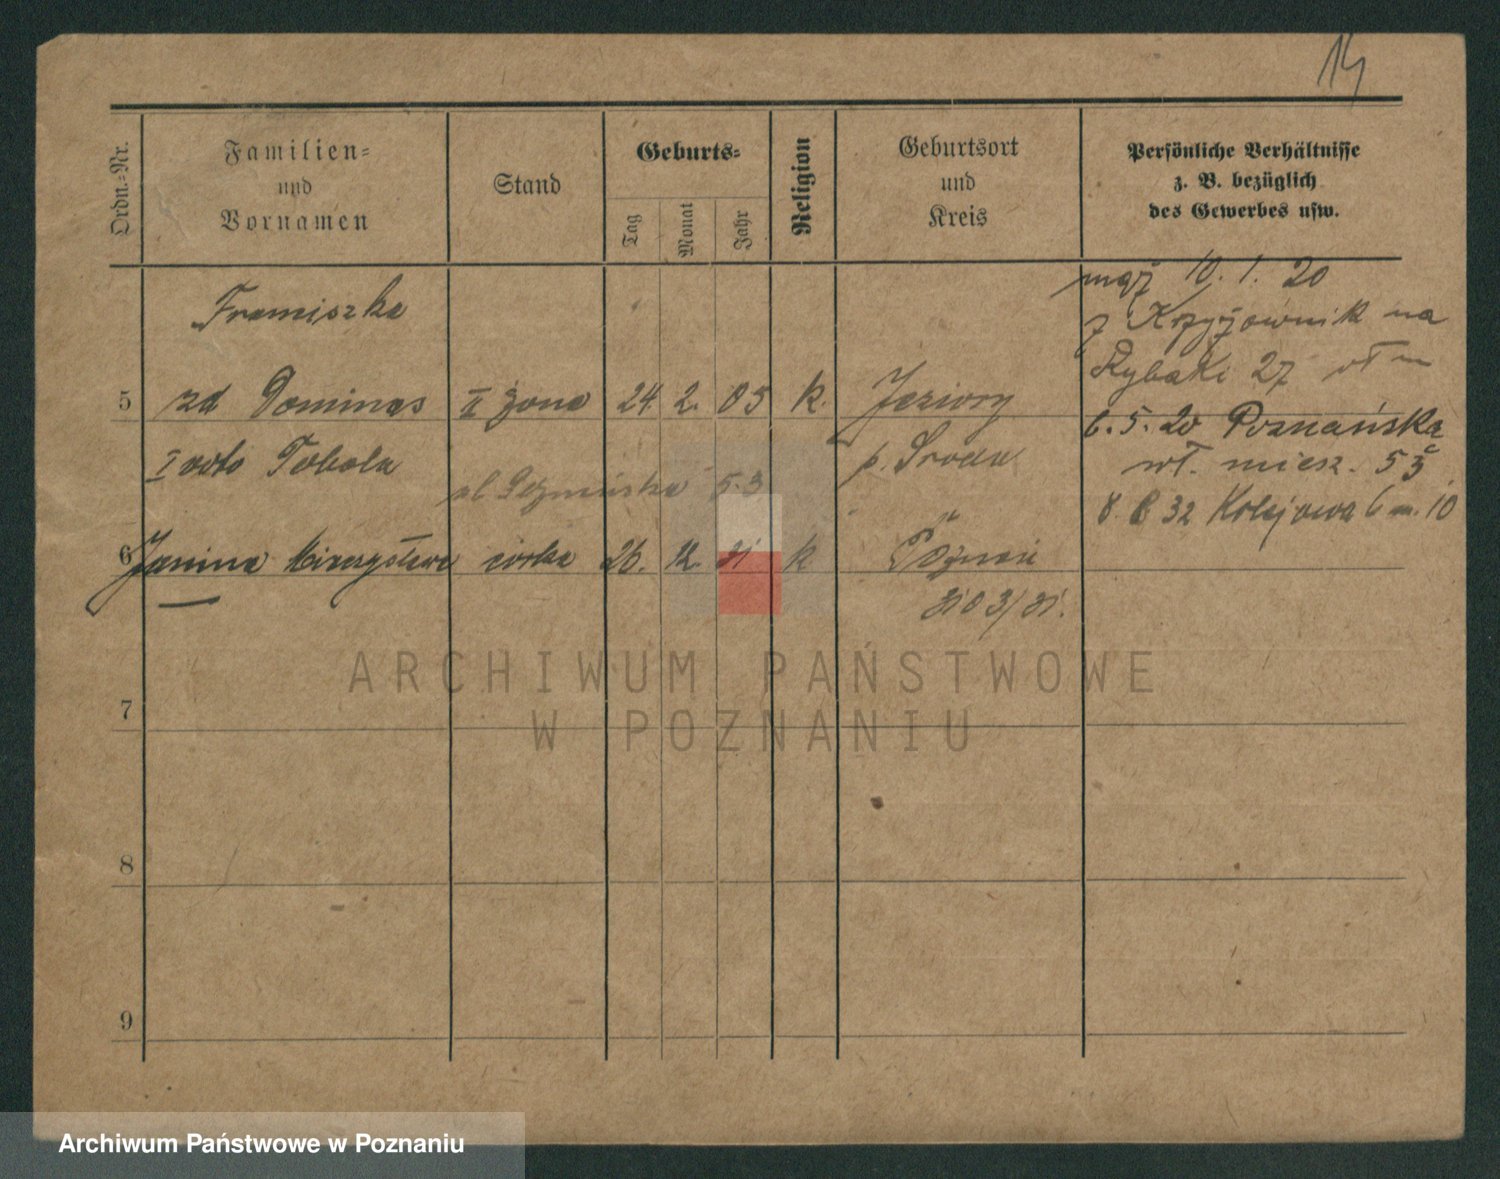 14
Ordn.=Nr.
Familien=
und
Vornamen
Stand
Geburts=
Tag
Monat
Jahr
Religion
Geburtsort
und
Kreis
Persönliche Verhältnisse
z. B. bezüglich
des Gewerbes usw.
mąż 10. 1. 20
z Krzyżownik na
Rybaki 27
6. 5. 20 Poznańska
wł. miesz. 53
8. 8 32 Kolejowa 6 m. 10
Franciszka
5 zd Dominas II żona 24. 2. 05 k. Jeziory
I voto Tobola p. Środa
ul. Poznańska 53
6 Janina Mieczysława córka 26. 12. 31 k Poznań
3103/31.
7
8
9
ARCHIWUM PAŃSTWOWE
W POZNANIU
Archiwum Państwowe w Poznaniu